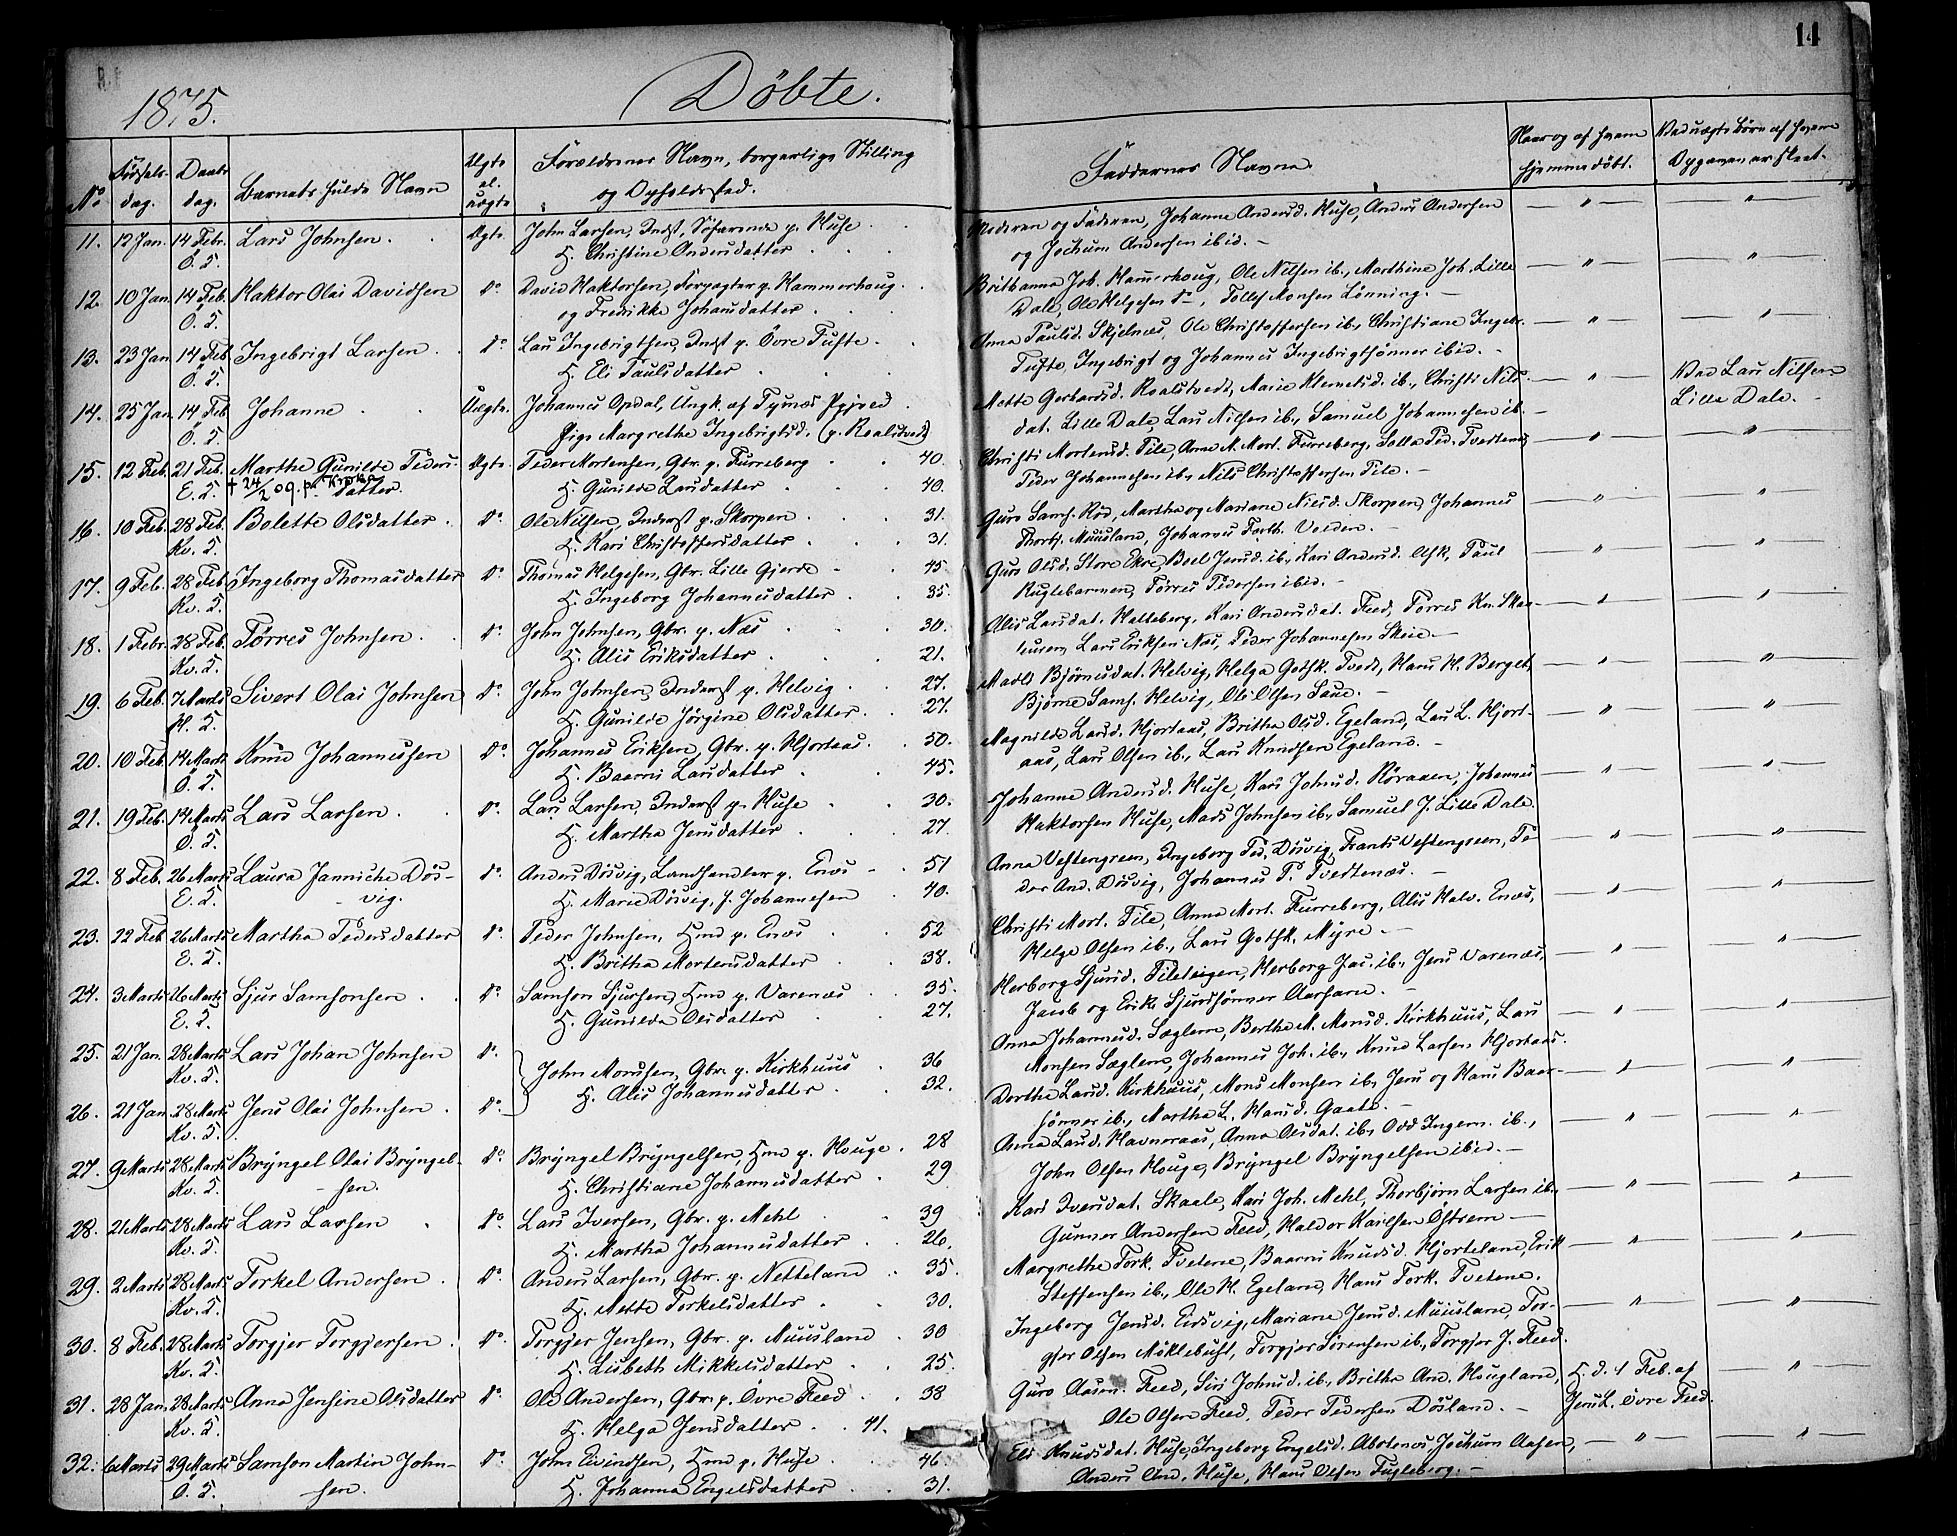 14
1875. Döbte.
No Fødsels- dag. Daabs- dag. Barnets fulde Navn Ægte el. uægte Forældrenes Navn, borgerlige Stilling og Opholdssted.
Faddernes Navne Naar og af hvem hjemmedöbt. Ved uægte Börn af hvem Opgaven er skeet.
11. 12 Jan. 14 Febr. Lars Johnsen. Ægte John Larsen, Indst, Söfarende p. Huse
Ö. T. H. Christine Andersdatter
Moderen og Faderen, Johanne Andersd. Huse, Anders Andersen
og Jochum Andersen ibid. —
12. 10 Jan 14 Feb. Haktor Olai Davidsen do David Haktorsen, Forpagter p. Hammerhoug.
Ö. T. og Fredrikke Johansdatter
Brithanna Joh. Hammerhoug, Ole Nilsen ib., Marthine Joh. Lille
Dale, Ole Helgesen do —, Tollef Monsen Lönning. —
13. 23 Jan 14 Feb Ingebrigt Larsen do Lars Ingebrigtsen, Indst p. Övre Tufte.
Ö. T. H. Eli Paulsdatter
Anna Paulsd. Skjelnæs, Ole Christoffersen ib., Christiane Ingebr.
Tufte, Ingebrigt og Johannes Ingebrigtsönner ibid. —
14. 25 Jan. 14 Feb Johanne Uægte. Johannes Opdal, Ungk. af Tysnæs Pgjeld
Ö. T. Pige Margrethe Ingebrigtsd. (p. Roalstvedt)
Mette Gerhardsd. Roalstvedt, Marie Klemetsd. ib., Christi Nils-
dat. Lille Dale, Lars Nilsen ib., Samuel Johannesen ib. —
Ved Lars Nilsen
Lille Dale. —
15. 12 Feb. 21 Feb. Marthe Gunilde Peders- Ægte. Peder Mortensen, Gbr. p. Furreberg 40.
E. T. † 24/2 09. på Kroka datter. H. Gunilde Larsdatter 40.
Christi Mortensd. Tile, Anne M. Mort. Furreberg, Ped. Tvedtenæs
Peder Johannesen ib., Nils Christoffersen Tile. —
16. 10 Feb. 28 Feb. Bolette Olsdatter do Ole Nilsen, Inderst p. Skorpen 31.
Kv. T. H. Kari Christoffersdatter 31.
Guro Sams. Röd, Marthe og Mariane Nilsd. Skorpen, Johannes
Thorbj. Muusland, Johannes Valden. —
17. 9 Feb. 28 Feb. Ingeborg Thomasdatter do Thomas Helgesen, Gbr. Lille Gjerde 45
Kv. T. H. Ingeborg Johannesdatter 35.
Guro Olsd. Store Ekre, Boel Jensd. ib., Kari Andersd. Paul
Kuglebarmen, Törres Pedersen ibid. —
18. 1 Febr. 28 Feb. Törres Johnsen do John Johnsen, Gbr. p. Næs 30.
Kv. T. H. Alis Eriksdatter 21.
Alis Larsdat. Helleberg, Kari Andersdat. Feed, Törres Kn. Skaa-
leuren, Lars Eriksen Næs, Peder Johannesen Skeie. —
19. 6 Feb. 7 Marts Sivert Olai Johnsen do John Johnsen, Inderst p. Helvig 27.
H. T. H. Gunilde Jörgine Olsdatter 27.
Madle Björnsdat. Helvig, Helga Gotsk. Tvedt, Hans H. Berget,
Björne Sams. Helvig, Ole Olsen Saue. —
20. 10 Feb. 14 Marts Knud Johannessen do Johannes Eriksen, Gbr. p. Hjortaas. 50.
Ö. T. H. Baarni Larsdatter 45.
Magnilde Larsd. Hjortaas, Britha Olsd. Egeland, Lars L. Hjort-
aas, Lars Olsen ib., Lars Knudsen Egeland. —
21. 19 Feb. 14 Marts Lars Larsen do Lars Larsen, Inderst p. Huse 30.
Ö. T. H. Martha Jensdatter 27
Johanne Andersd. Huse, Kari Johnsd. Röraaen, Johannes
Haktorsen Huse, Mads Johnsen ib., Samuel J. Lille Dale.
22. 8 Feb. 26 Marts Laura Janniche Dös- do Anders Dösvig, Landhandler p. Enæs 51
E. T. vig. H. Marie Dösvig, f. Johannesen 40.
Anna Vestengreen, Ingeborg Ped. Dösvig, Frants Vestengreen, Pe-
der And. Dösvig, Johannes P. Tvedtenæs. —
23. 22 Feb 26 Marts Martha Pedersdatter do Peder Johnsen, Hmd p. Enæs 52
E. T. H. Britha Mortensdatter 38.
Christi Mort. Tile, Anna Mort. Furreberg, Alis Halv. Enæs,
Helge Olsen ib., Lars Gotsk. Myre. —
24. 3 Marts 26 Marts Sjur Samsonsen do Samson Sjursen, Hmd p. Varenæs 35.
E. T. H. Gunilda Olsdatter 27.
Herborg Sjursd. Tileteigen, Herborg Jac. ib., Jens Varenæs,
Jacob og Erik Sjursönner Aarsand. —
25. 21 Jan. 28 Marts Lars Johan Johnsen do John Monsen, Gbr. p. Kirkhuus 36
Kv. T. H. Alis Johannesdatter 32.
Anna Johannesd. Sæglem, Berthe M. Monsd. Kirkhuus, Lars
Monsen Sæglem, Johannes Joh. ib., Knud Larsen Hjortaas.
26. 21 Jan. 28 Marts Jens Olai Johnsen do
Kv. T.
Dorthe Larsd. Kirkhuus, Mons Monsen ib., Jens og Hans Baar-
sönner ib., Martha L. Hansd. Gaate. —
27. 9 Marts 28 Marts Bryngel Olai Bryngel- do Bryngel Bryngelsen, Hmd p. Houge 28
Kv. T. sen. H. Christiane Johannesdatter 29
Anna Larsd. Havneraas, Anna Olsdat. ib., Odd Ingem. ib.,
John Olsen Houge, Bryngel Bryngelsen ibid. —
28. 21 Marts 28 Marts Lars Larsen do Lars Iversen, Gbr. p. Mehl 39
Kv. T. H. Martha Johannesdatter 26.
Kari Iversdat. Skaale, Kari Joh. Mehl, Thorbjörn Larsen ib.,
Gunner Andersen Feed, Haldor Karlsen Östrem —
29. 2 Marts 28 Marts Torkel Andersen do Anders Larsen, Gbr. p. Netteland 35.
Kv. T. H. Mette Torkelsdatter 30.
Margrethe Tork. Tvetene, Baarni Knudsd. Hjorteland, Erik
Steffensen ib., Ole H. Egeland, Hans Tork. Tvetene.
30. 8 Feb. 28 Marts Torgjer Torgjersen do Torgjer Jensen, Gbr. p. Muusland 30
Kv. T. H. Lisbeth Mikkelsdatter 25.
Ingeborg Jensd. Eidsvig, Mariane Jensd. Muusland, Tor-
gjer Olsen Möklebust, Torgjer Sörensen ib., Torgjer J. Feed.
31. 28 Jan. 28 Marts Anna Jensine Olsdatter do Ole Andersen, Gbr. p. Övre Feed 38
Kv. T. H. Helga Jensdatter 41.
Guro Aasm. Feed, Siri Johnsd. ib., Britha And. Hougland,
Ole Olsen Feed, Peder Pedersen Dösland. —
H. d. 1 Feb. af
Jens L. Övre Feed.
32. 6 Marts 29 Marts Samson Martin John- do John Eivindsen, Hmd p. Huse 46
Ö. T. sen. H. Johanna Engelsdatter 31.
Eli Knudsdat. Huse, Ingeborg Engelsd. Abotenæs, Jochum Aasen,
Anders And. Huse, Hans Olsen Fugleberg. —